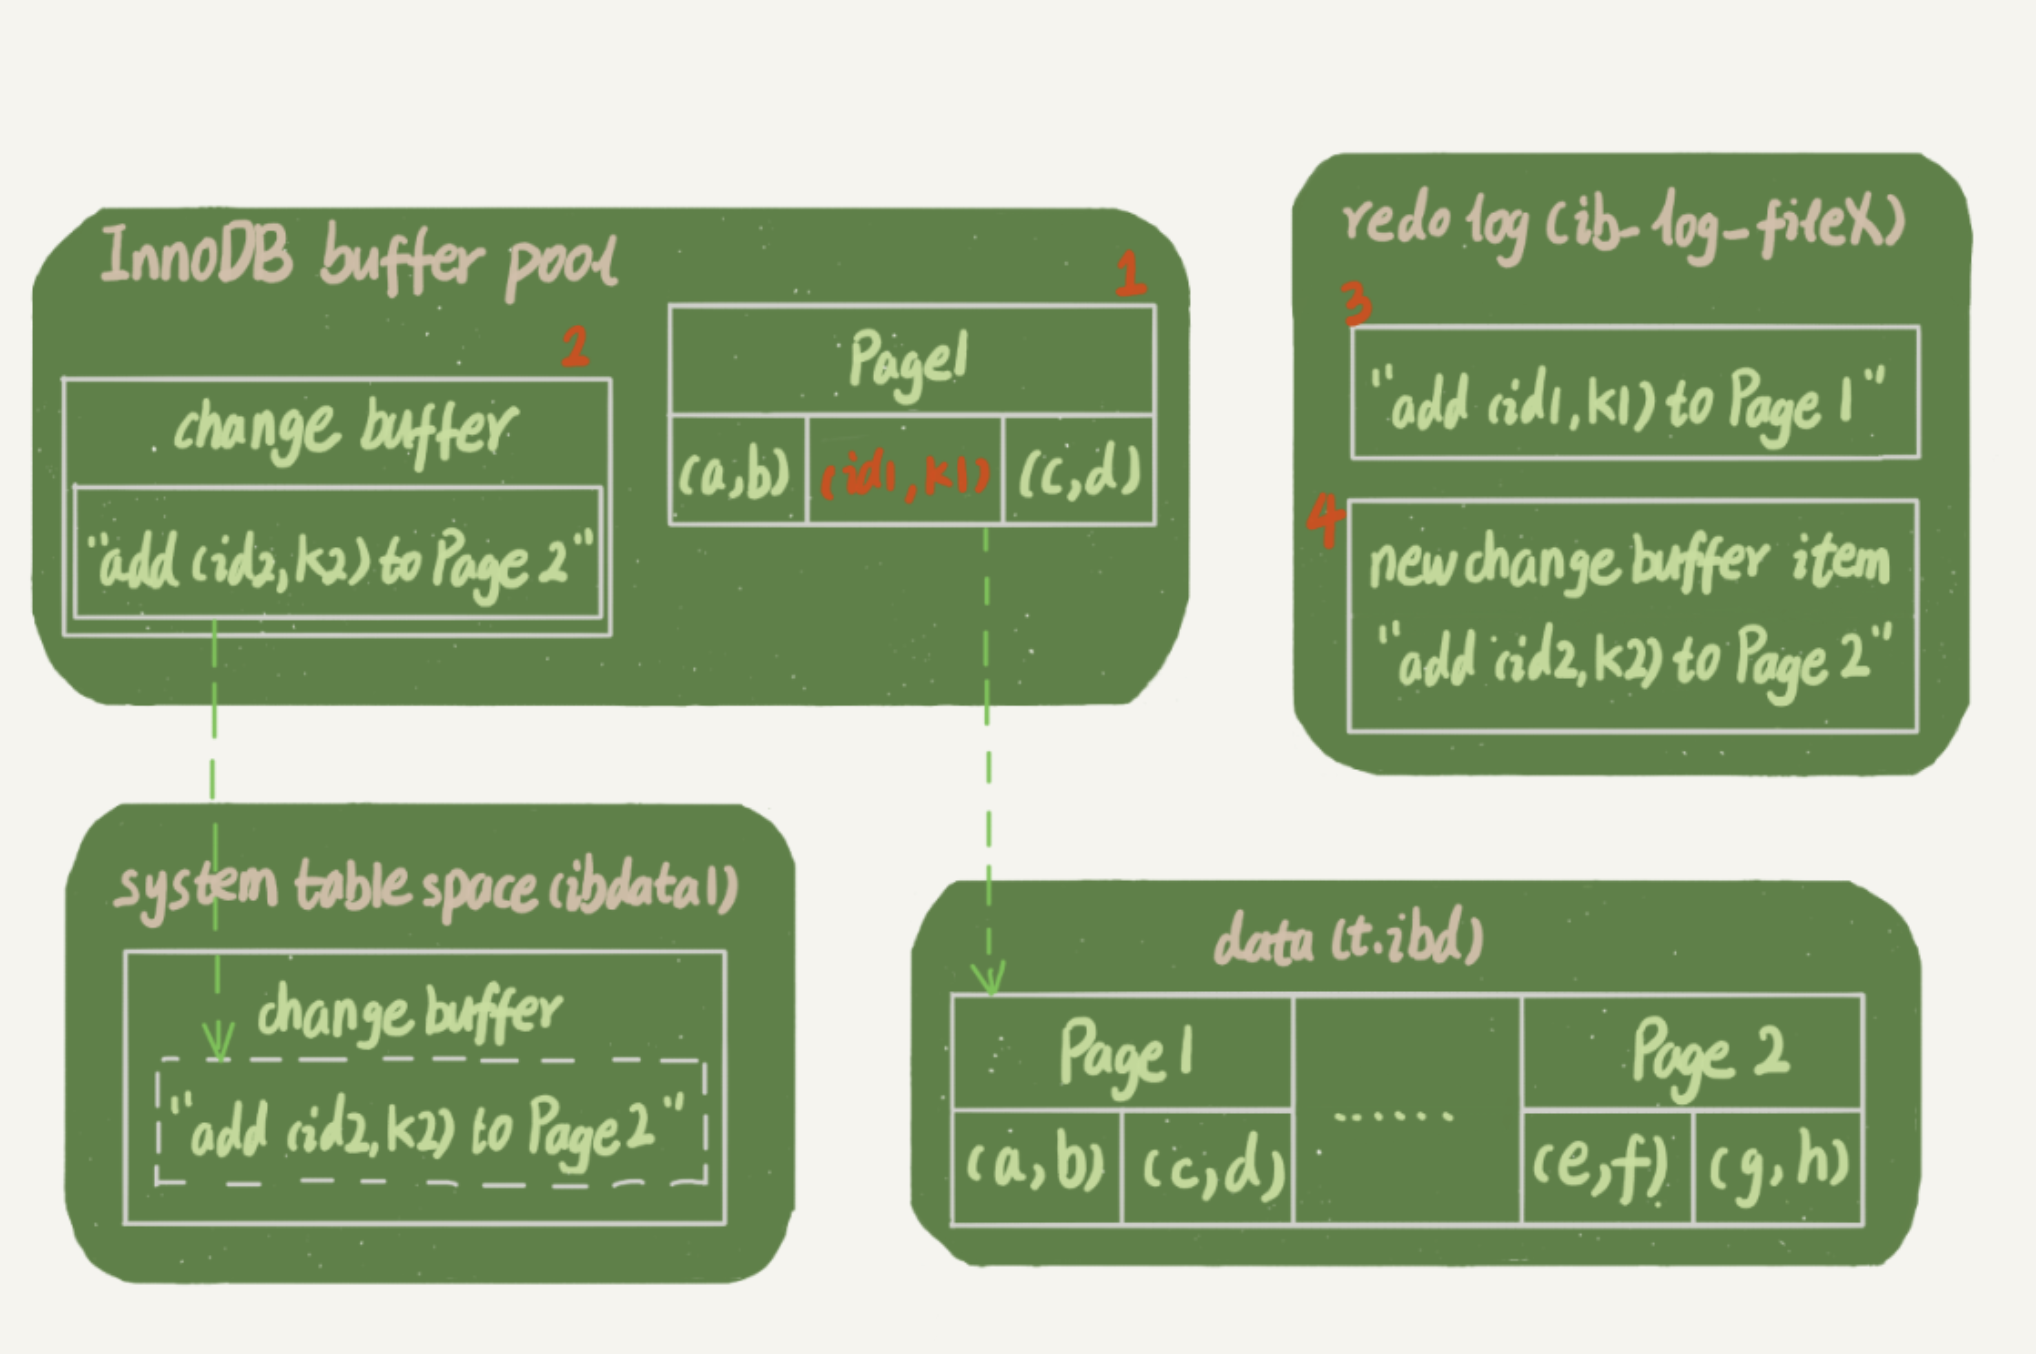 InnoDB buffer pool
1
Page1
(a,b) (id1,k1) (c,d)
2
change buffer
"add (id2,k2) to Page 2"
redo log (ib_log_fileX)
3
"add (id1,k1) to Page 1"
4
new change buffer item
"add (id2,k2) to Page 2"
system table space (ibdata1)
change buffer
"add (id2,k2) to Page2"
data (t.ibd)
Page 1 ...... Page 2
(a,b) (c,d) (e,f) (g,h)